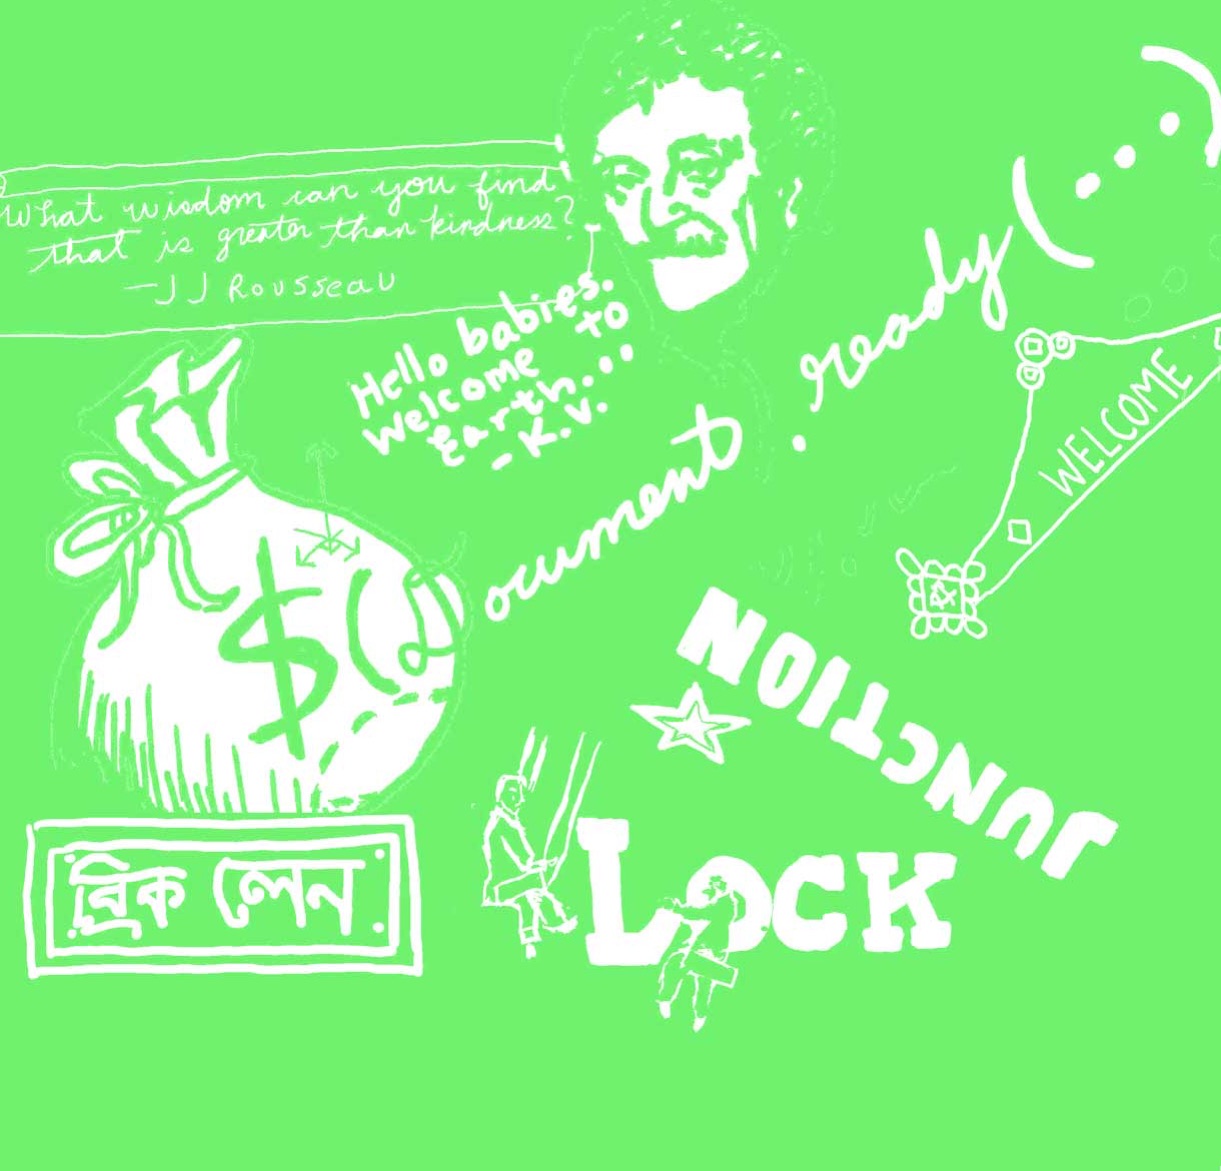 What wisdom can you find
that is greater than kindness?
—J J Rousseau
Hello babies.
Welcome to
Earth...
- K.V.
$(document).ready(....)
WELCOME
JUNCTION
LOCK
ব্রিক লেন